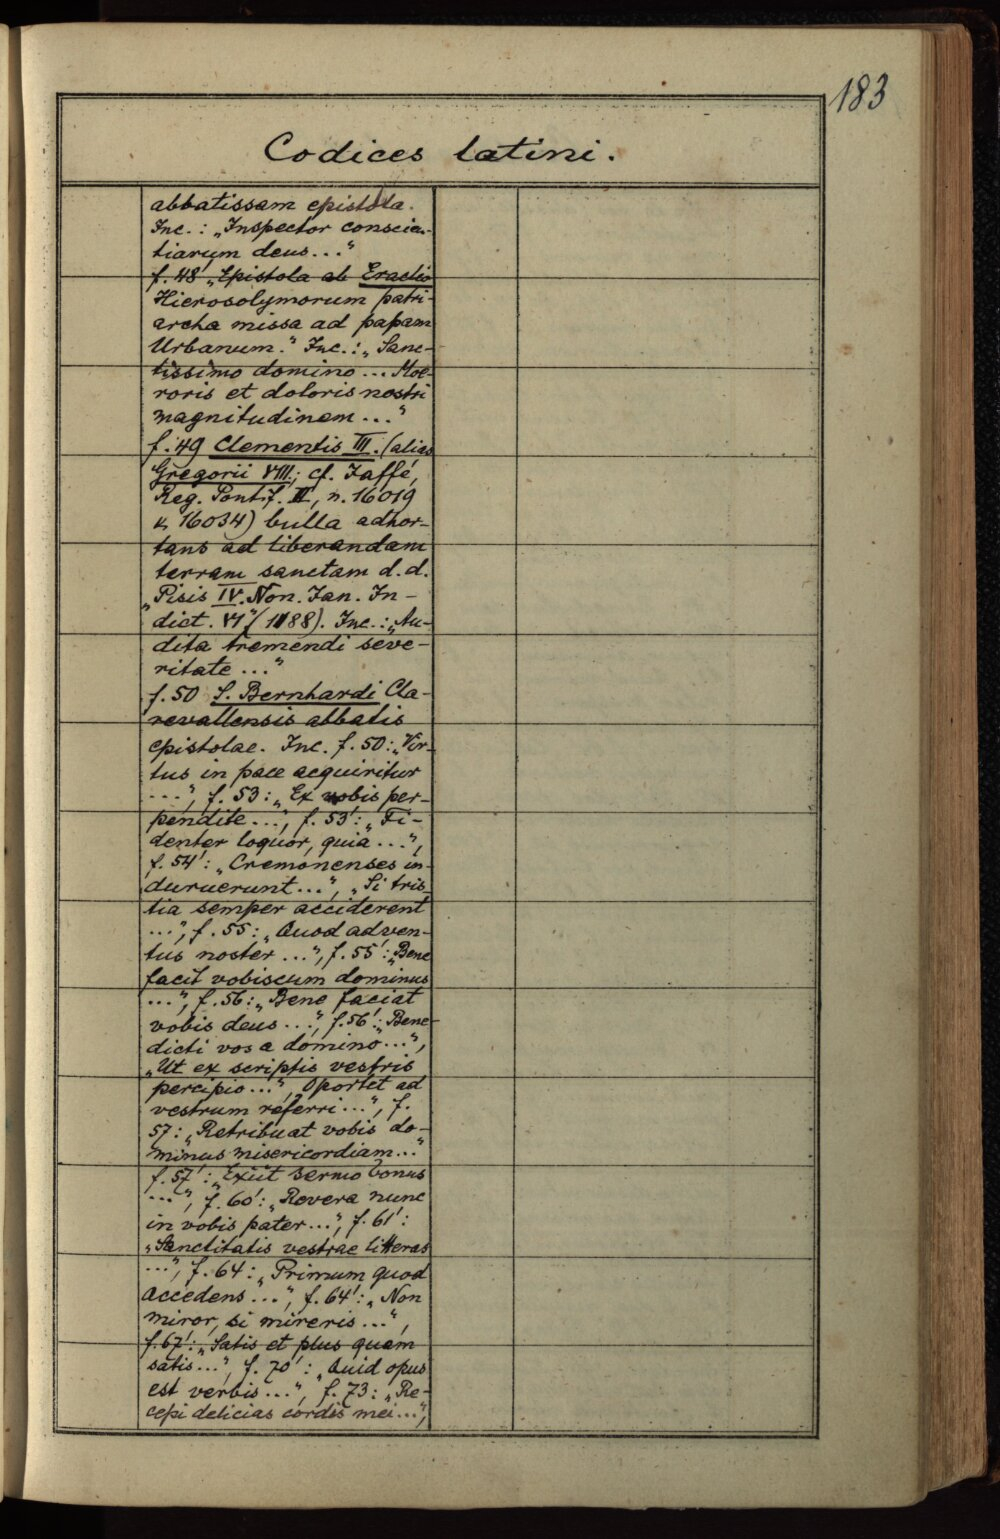 183
Codices latini.
abbatissam epistola.
Inc.: „Inspector conscien-
tiarum deus..."
f. 48' „Epistola ab Eraclio
Hierosolymorum patri-
archa missa ad papam
Urbanum." Inc.: „Sanc-
tissimo domino... Moe-
roris et doloris nostri
magnitudinem..."
f. 49 Clementis III. (alias
Gregorii VIII.; cf. Jaffé,
Reg. Pontif. II, n. 16019
u. 16034) bulla adhor-
tans ad liberandam
terram sanctam d. d.
„Pisis IV. Non. Jan. In-
dict. VI" (1188). Inc.: „Au-
dita tremendi seve-
ritate..."
f. 50 S. Bernhardi Cla-
revallensis abbatis
epistolae. Inc. f. 50: „Vir-
tus in pace acquiritur
...", f. 53: „Ex vobis per-
pendite...", f. 53': „Fi-
denter loquor, quia...",
f. 54': „Cremonenses in-
duruerunt...", „Si tris-
tia semper acciderent
...", f. 55: „Quod adven-
tus noster...", f. 55': „Bene
facit vobiscum dominus
...", f. 56: „Bene faciat
vobis deus...", f. 56': „Bene-
dicti vos a domino...",
„Ut ex scriptis vestris
percipio...", „Oportet ad
vestrum referri...", f.
57: „Retribuat vobis do-
minus misericordiam..."
f. 57': „Exiit sermo bonus
...", f. 60': „Revera nunc
in vobis pater...", f. 61':
„Sanctitatis vestrae litteras
...", f. 64: „Primum quod
accedens...", f. 64': „Non
miror, si mireris...",
f. 67': „Satis et plus quam
satis...", f. 70': „Quid opus
est verbis...", f. 73: „Re-
cepi delicias cordis mei...",